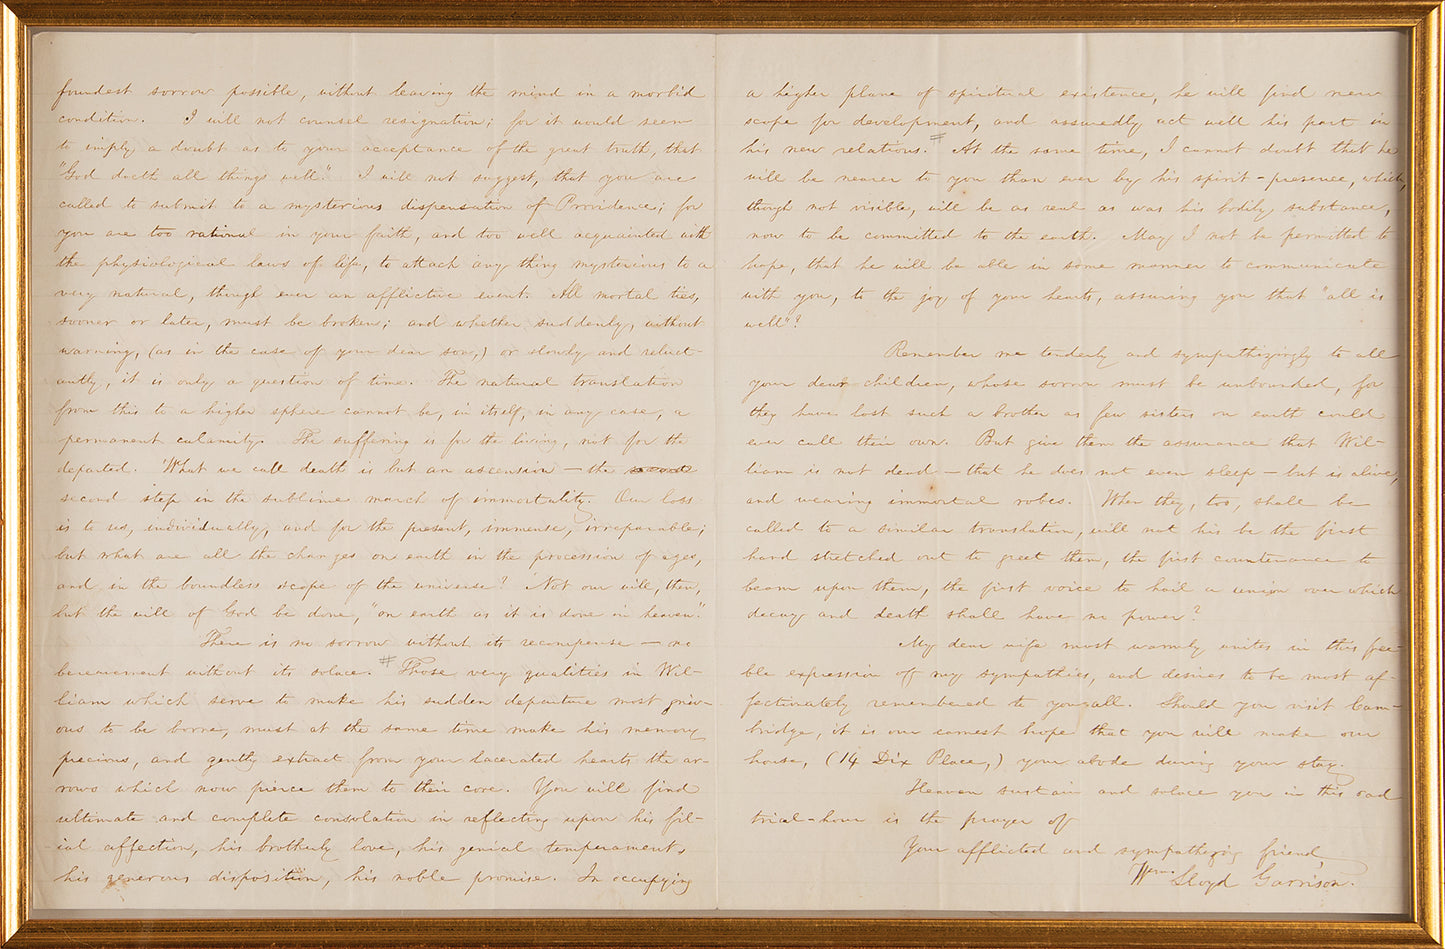 foundest sorrow possible, without leaving the mind in a morbid
condition. I will not counsel resignation; for it would seem
to imply a doubt as to your acceptance of the great truth, that
"God doeth all things well." I will not suggest, that you are
called to submit to a mysterious dispensation of Providence; for
you are too rational in your faith, and too well acquainted with
the physiological laws of life, to attach any thing mysterious to a
very natural, though ever an afflictive event. All mortal ties,
sooner or later, must be broken; and whether suddenly, without
warning, (as in the case of your dear son,) or slowly and reluct-
antly, it is only a question of time. The natural translation
from this to a higher sphere cannot be, in itself, in any case, a
permanent calamity. The suffering is for the living, not for the
departed. What we call death is but an ascension — the second
second step in the sublime march of immortality. Our loss
is to us, individually, and for the present, immense, irreparable;
but what are all the changes on earth in the procession of ages,
and in the boundless scope of the universe? Not our will, then,
but the will of God be done, "on earth as it is done in heaven."
There is no sorrow without its recompense — no
bereavement without its solace. # Those very qualities in Wil-
liam which serve to make his sudden departure most griev-
ous to be borne, must at the same time make his memory
precious, and gently extract from your lacerated hearts the ar-
rows which now pierce them to their core. You will find
ultimate and complete consolation in reflecting upon his fil-
ial affection, his brotherly love, his genial temperament,
his generous disposition, his noble promise. In occupying
a higher plane of spiritual existence, he will find new
scope for development, and assuredly act well his part in
his new relations. # At the same time, I cannot doubt that he
will be nearer to you than ever by his spirit-presence, which,
though not visible, will be as real as was his bodily substance,
now to be committed to the earth. May I not be permitted to
hope, that he will be able in some manner to communicate
with you, to the joy of your hearts, assuring you that "all is
well"?
Remember me tenderly and sympathizingly to all
your dear children, whose sorrow must be unbounded, for
they have lost such a brother as few sisters on earth could
ever call their own. But give them the assurance that Wil-
liam is not dead — that he does not even sleep — but is alive,
and wearing immortal robes. When they, too, shall be
called to a similar translation, will not his be the first
hand stretched out to greet them, the first countenance to
beam upon them, the first voice to hail a union over which
decay and death shall have no power?
My dear wife most warmly unites in this fee-
ble expression of my sympathies, and desires to be most af-
fectionately remembered to you all. Should you visit Cam-
bridge, it is our earnest hope that you will make our
house, (14 Dix Place,) your abode during your stay.
Heaven sustain and solace you in this sad
trial-hour is the prayer of
Your afflicted and sympathizing friend,
Wm. Lloyd Garrison.